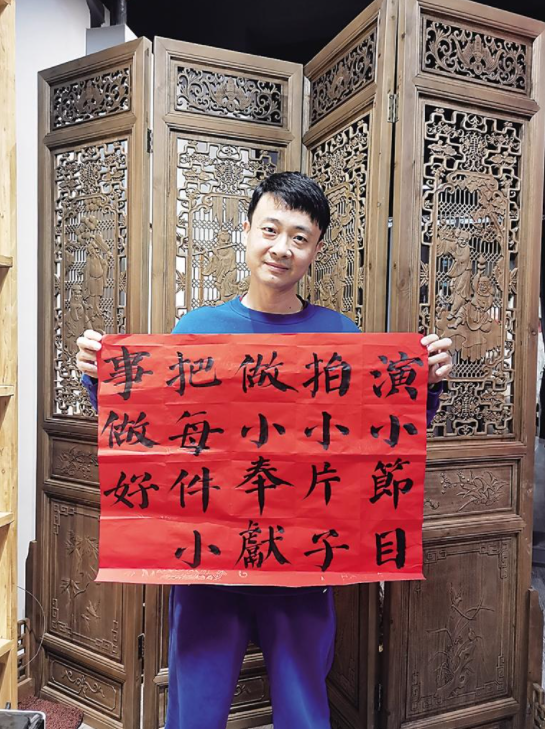 演小節目
拍小片子
做小奉獻
把每件小
事做好